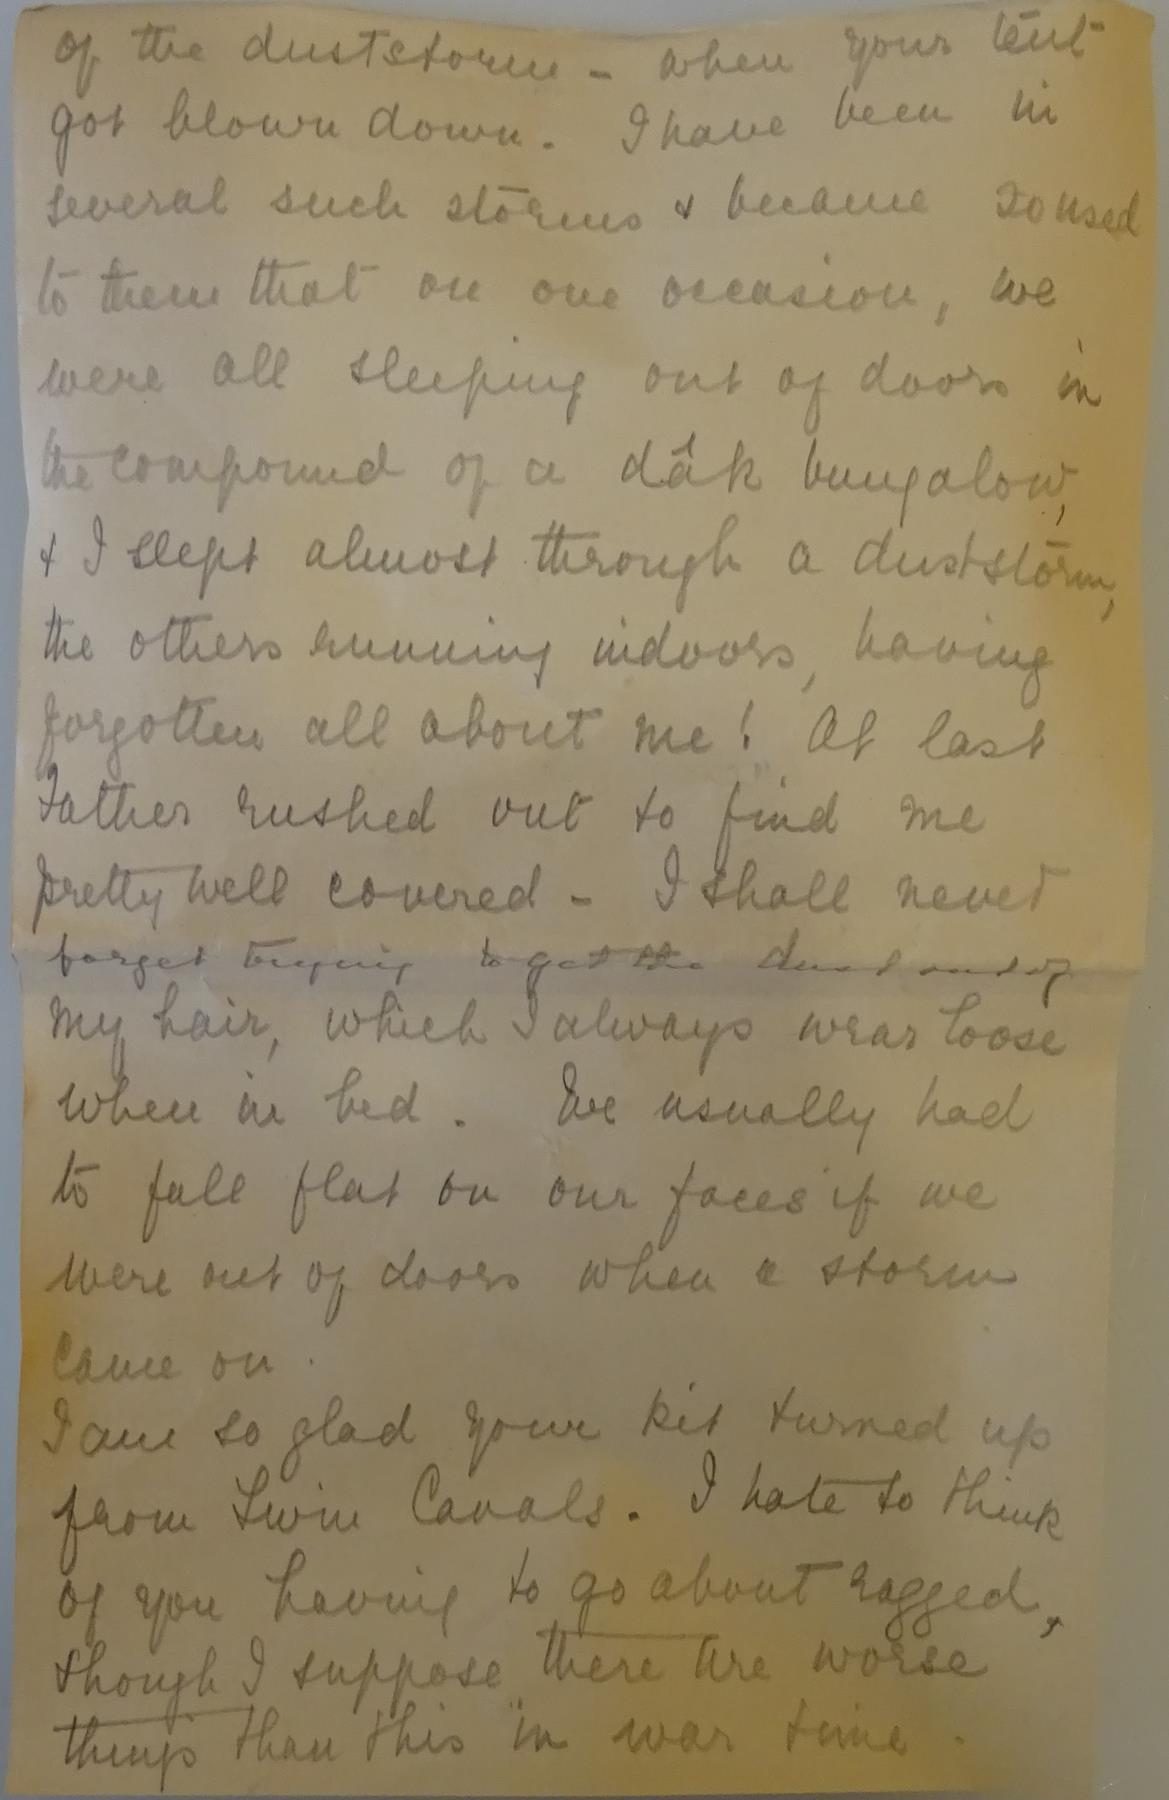 of the duststorm - when your tent
got blown down. I have been in
several such storms & became so used
to them that on one occasion, we
were all sleeping out of doors in
the compound of a dâk bungalow,
& I slept almost through a duststorm,
the others running indoors, having
forgotten all about me! At last
Father rushed out to find me
pretty well covered - I shall never
forget trying to get the dust out of
my hair, which I always wear loose
when in bed. We usually had
to fall flat on our faces if we
were out of doors when a storm
came on.
I am so glad your kit turned up
from Twin Canals. I hate to think
of you having to go about ragged,
though I suppose there are worse
things than this in war time.